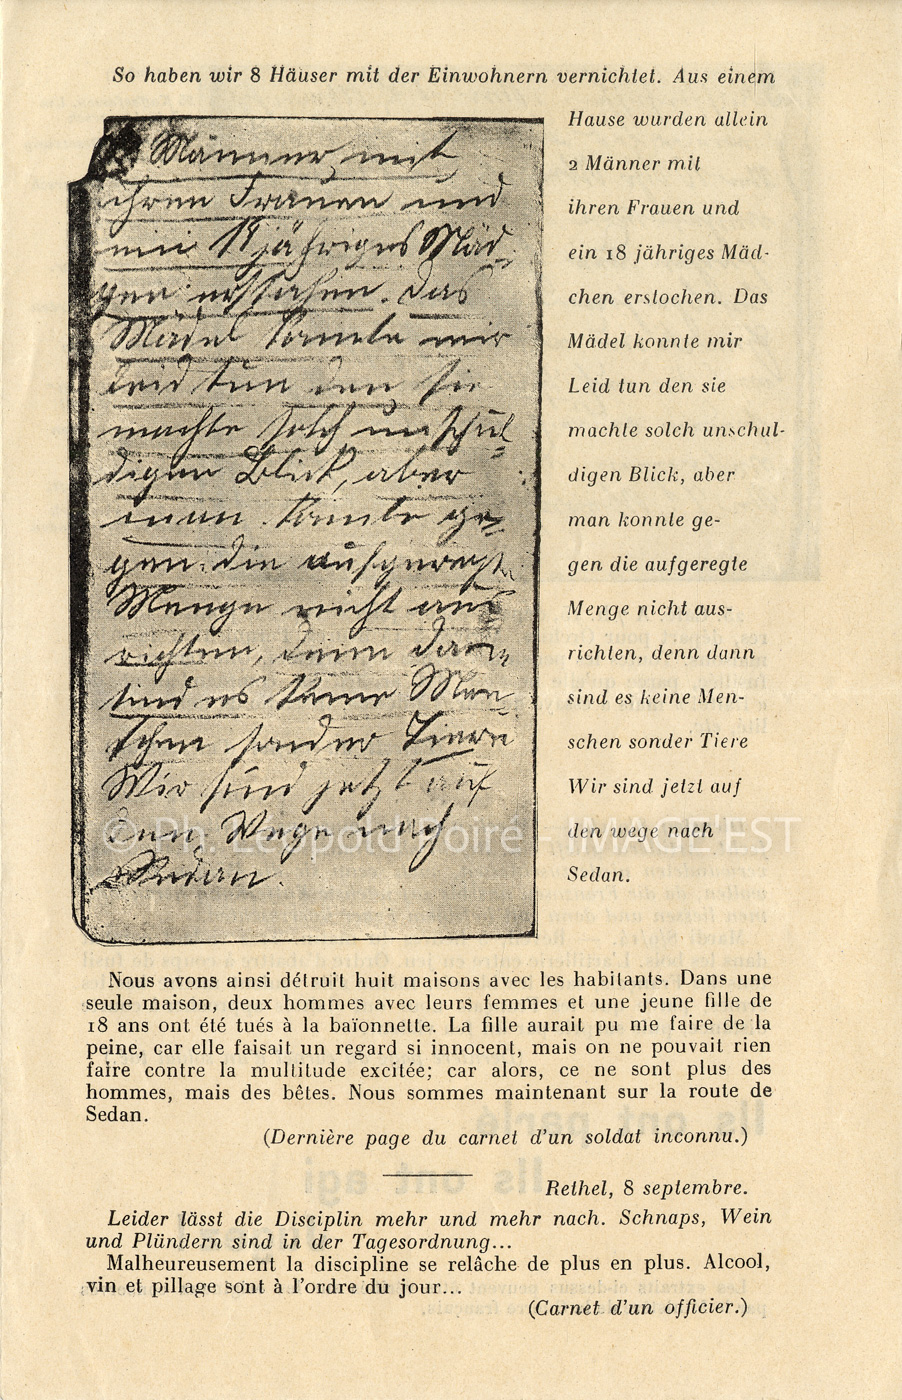 So haben wir 8 Häuser mit der Einwohnern vernichtet. Aus einem
Hause wurden allein
2 Männer mit
ihren Frauen und
ein 18 jähriges Mäd-
chen erstochen. Das
Mädel konnte mir
Leid tun den sie
machte solch unschul-
digen Blick, aber
man konnte ge-
gen die aufgeregte
Menge nicht aus-
richten, denn dann
sind es keine Men-
schen sonder Tiere
Wir sind jetzt auf
den wege nach
Sedan.
Männer mit
ihren Frauen und
ein 18 jähriges Mäd-
gen erstochen. Das
Mädel konnte mir
Leid tun den sie
machte solch unschul-
digen Blick, aber
man konnte ge-
gen die aufgeregte
Menge nicht aus
richten, denn dann
sind es keine Men-
schen sonder Tiere
Wir sind jetzt auf
den Wege nach
Sedan.
© Ph. Léopold Poiré - IMAGE'EST
Nous avons ainsi détruit huit maisons avec les habitants. Dans une
seule maison, deux hommes avec leurs femmes et une jeune fille de
18 ans ont été tués à la baïonnette. La fille aurait pu me faire de la
peine, car elle faisait un regard si innocent, mais on ne pouvait rien
faire contre la multitude excitée; car alors, ce ne sont plus des
hommes, mais des bêtes. Nous sommes maintenant sur la route de
Sedan.
(Dernière page du carnet d'un soldat inconnu.)
Rethel, 8 septembre.
Leider lässt die Disciplin mehr und mehr nach. Schnaps, Wein
und Plündern sind in der Tagesordnung...
Malheureusement la discipline se relâche de plus en plus. Alcool,
vin et pillage sont à l'ordre du jour...
(Carnet d'un officier.)